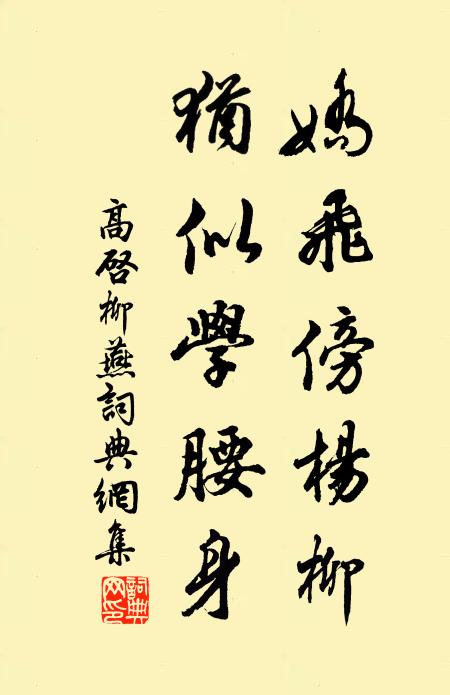 嬌飛傍楊柳
猶似學腰身
高啓柳燕詞典網集
詞典網印